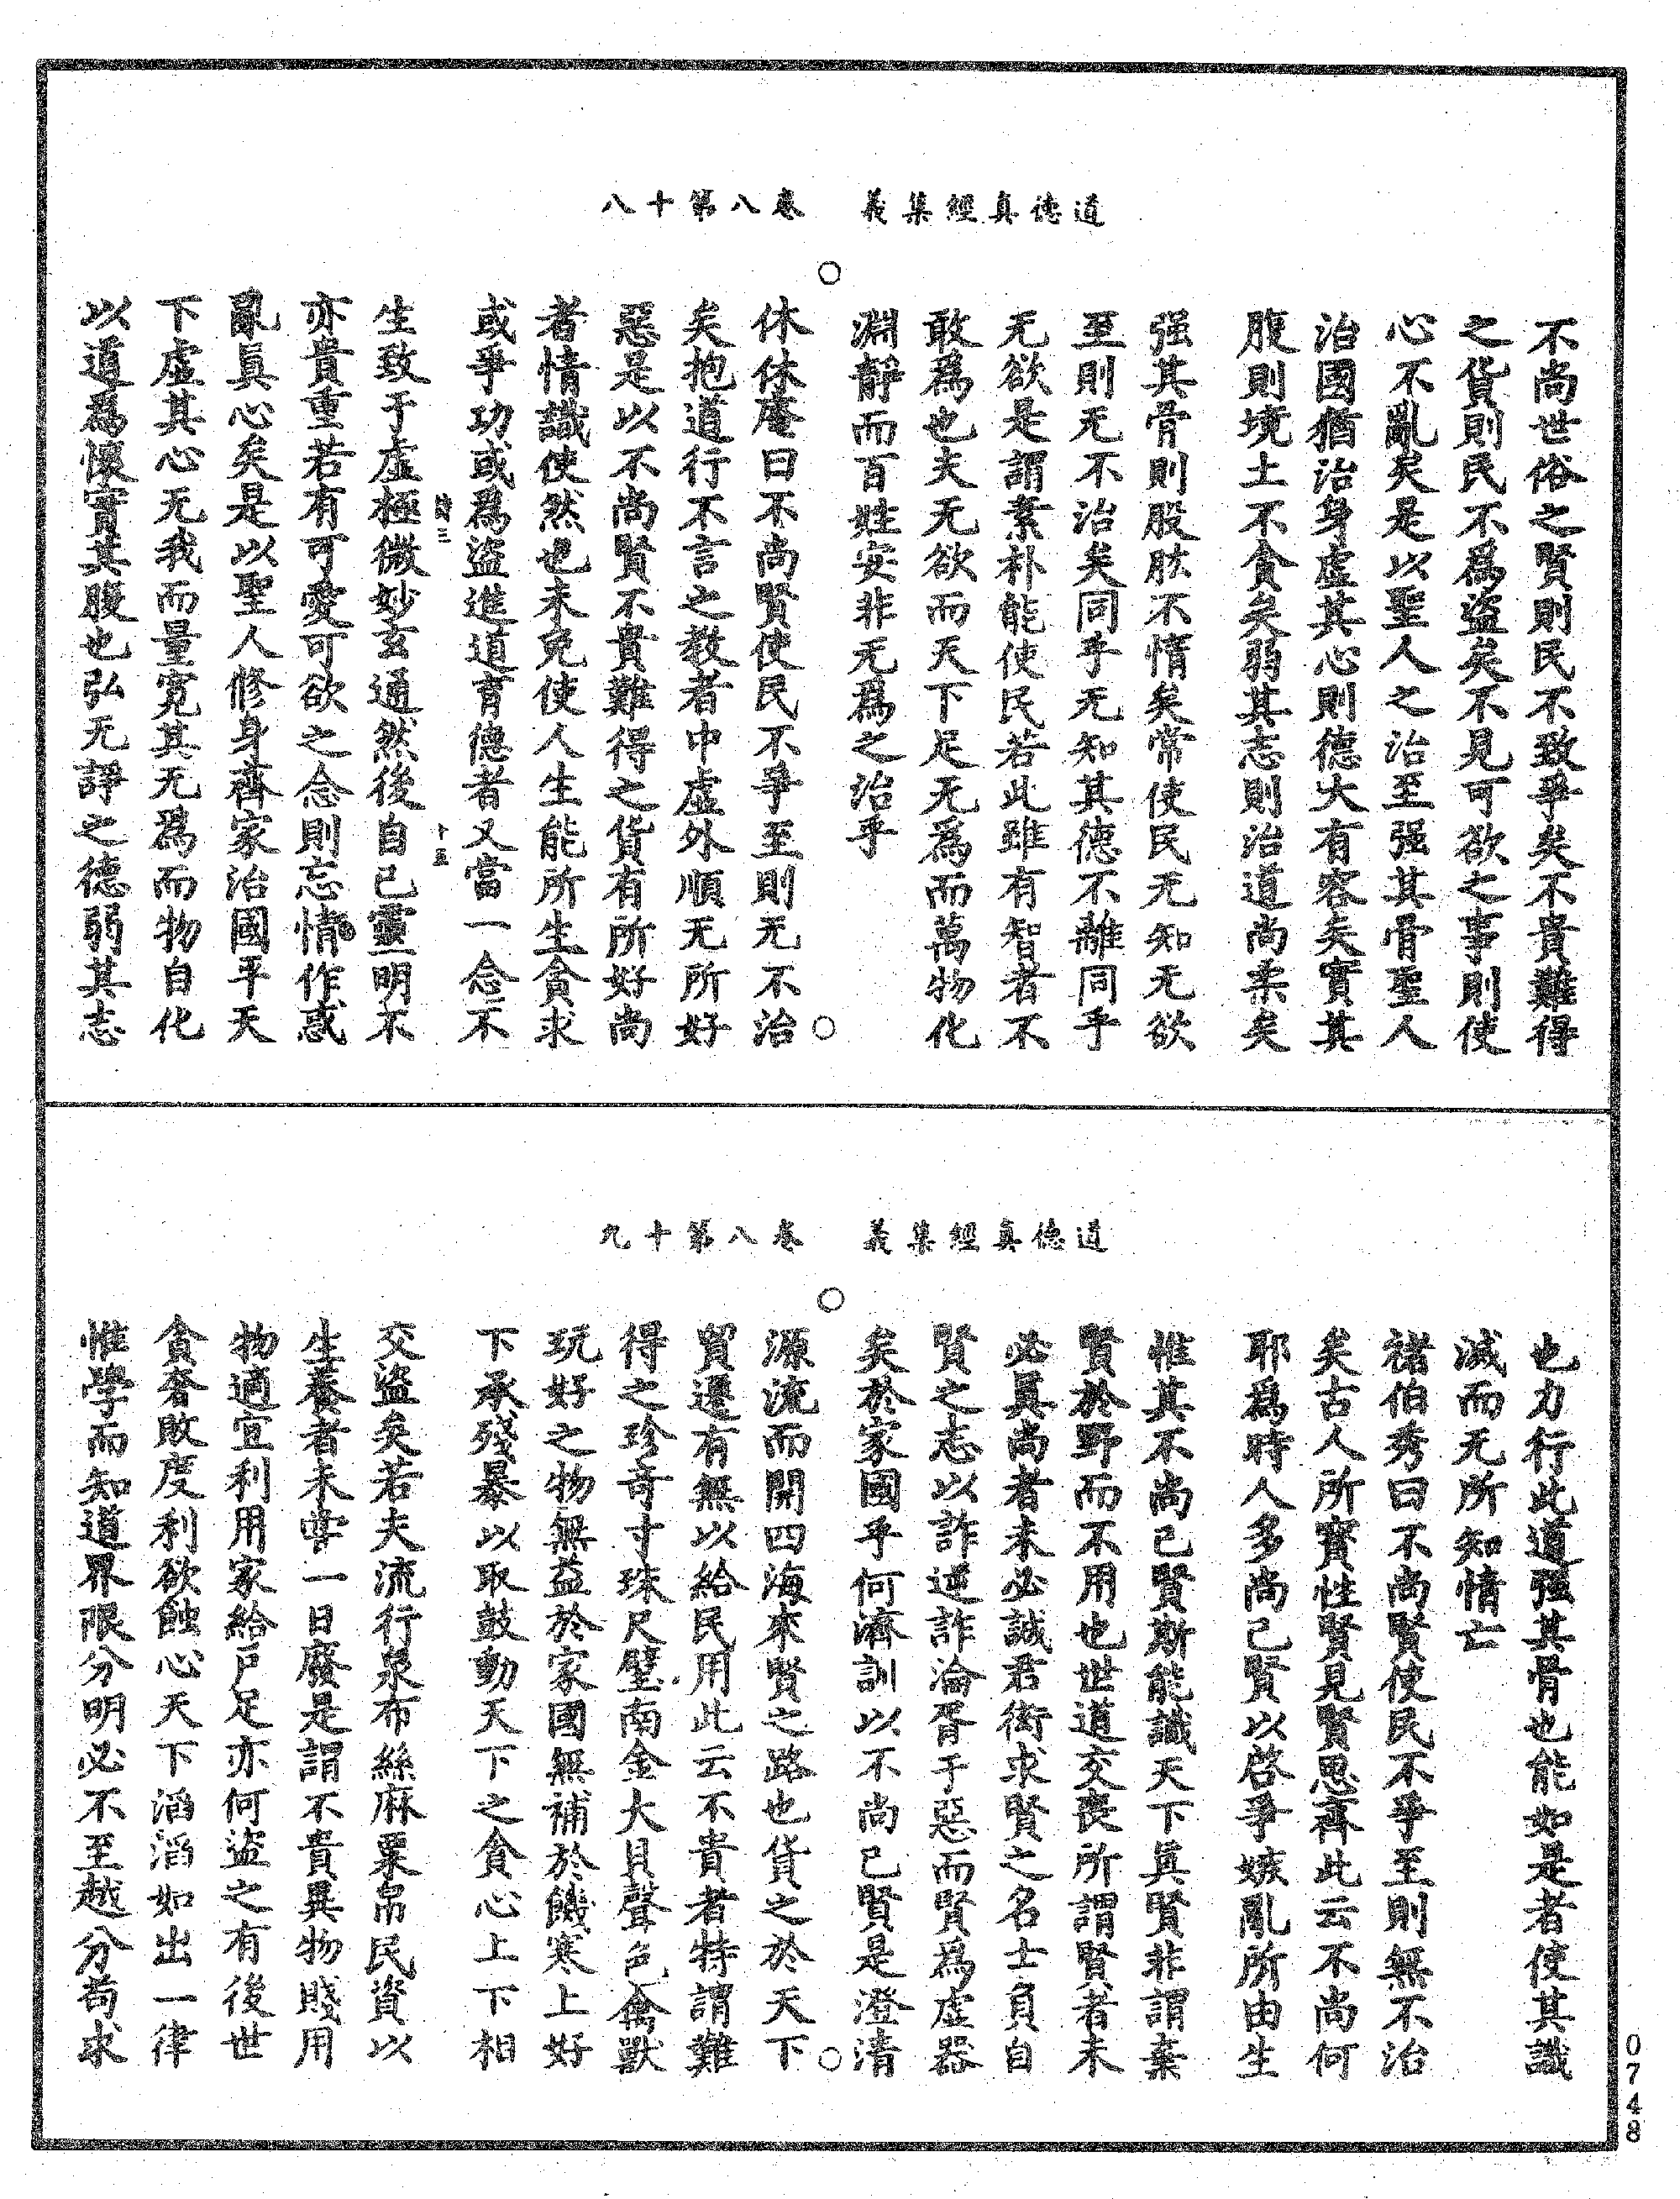 道德真經集義　卷八第十八
不尚世俗之賢則民不致爭矣不貴難得
之貨則民不爲盜矣不見可欲之事則使
心不亂矣是以聖人之治至强其骨聖人
治國猶治身虛其心則德大有容矣實其
腹則境土不貪矣弱其志則治道尚柔矣
强其骨則股肱不惰矣常使民无知无欲
至則无不治矣同乎无知其德不離同乎
无欲是謂素朴能使民若此雖有智者不
敢爲也夫无欲而天下足无爲而萬物化
淵靜而百姓安非无爲之治乎
休休庵曰不尚賢使民不爭至則无不治
矣抱道行不言之教者中虛外順无所好
惡是以不尚賢不貴難得之貨有所好尚
者情識使然也未免使人生能所生貪求
或爭功或爲盜進道育德者又當一念不
生致于虛極微妙玄通然後自己靈明不
十五
亦貴重若有可愛可欲之念則忘情作惑
亂眞心矣是以聖人修身齊家治國平天
下虛其心无我而量寬其无爲而物自化
以道爲懷實其腹也弘无諍之德弱其志
道德真經集義　卷八第十九
也力行此道强其骨也能如是者使其識
滅而无所知情亡
褚伯秀曰不尚賢使民不爭至則無不治
矣古人所寶性賢見賢思齊此云不尚何
耶爲時人多尚己賢以啓爭嫉亂所由生
惟其不尚己賢斯能識天下眞賢非謂棄
賢於野而不用也世道交喪所謂賢者未
必眞尚者未必誠君衒求賢之名士負自
賢之志以詐逆詐淪胥于惡而賢爲虛器
矣於家國乎何濟訓以不尚己賢是澄清
源流而開四海來賢之路也貨之於天下
貿遷有無以給民用此云不貴者特謂難
得之珍奇寸珠尺璧南金大貝聲色禽獸
玩好之物無益於家國無補於饑寒上好
下承殘暴以取鼓動天下之貪心上下相
交盜矣若夫流行泉布絲麻粟帛民資以
生養者未嘗一日廢是謂不貴異物賤用
物適宜利用家給戶足亦何盜之有後世
貪奢敗度利欲蝕心天下滔滔如出一律
惟學而知道界限分明必不至越分苟求
0748